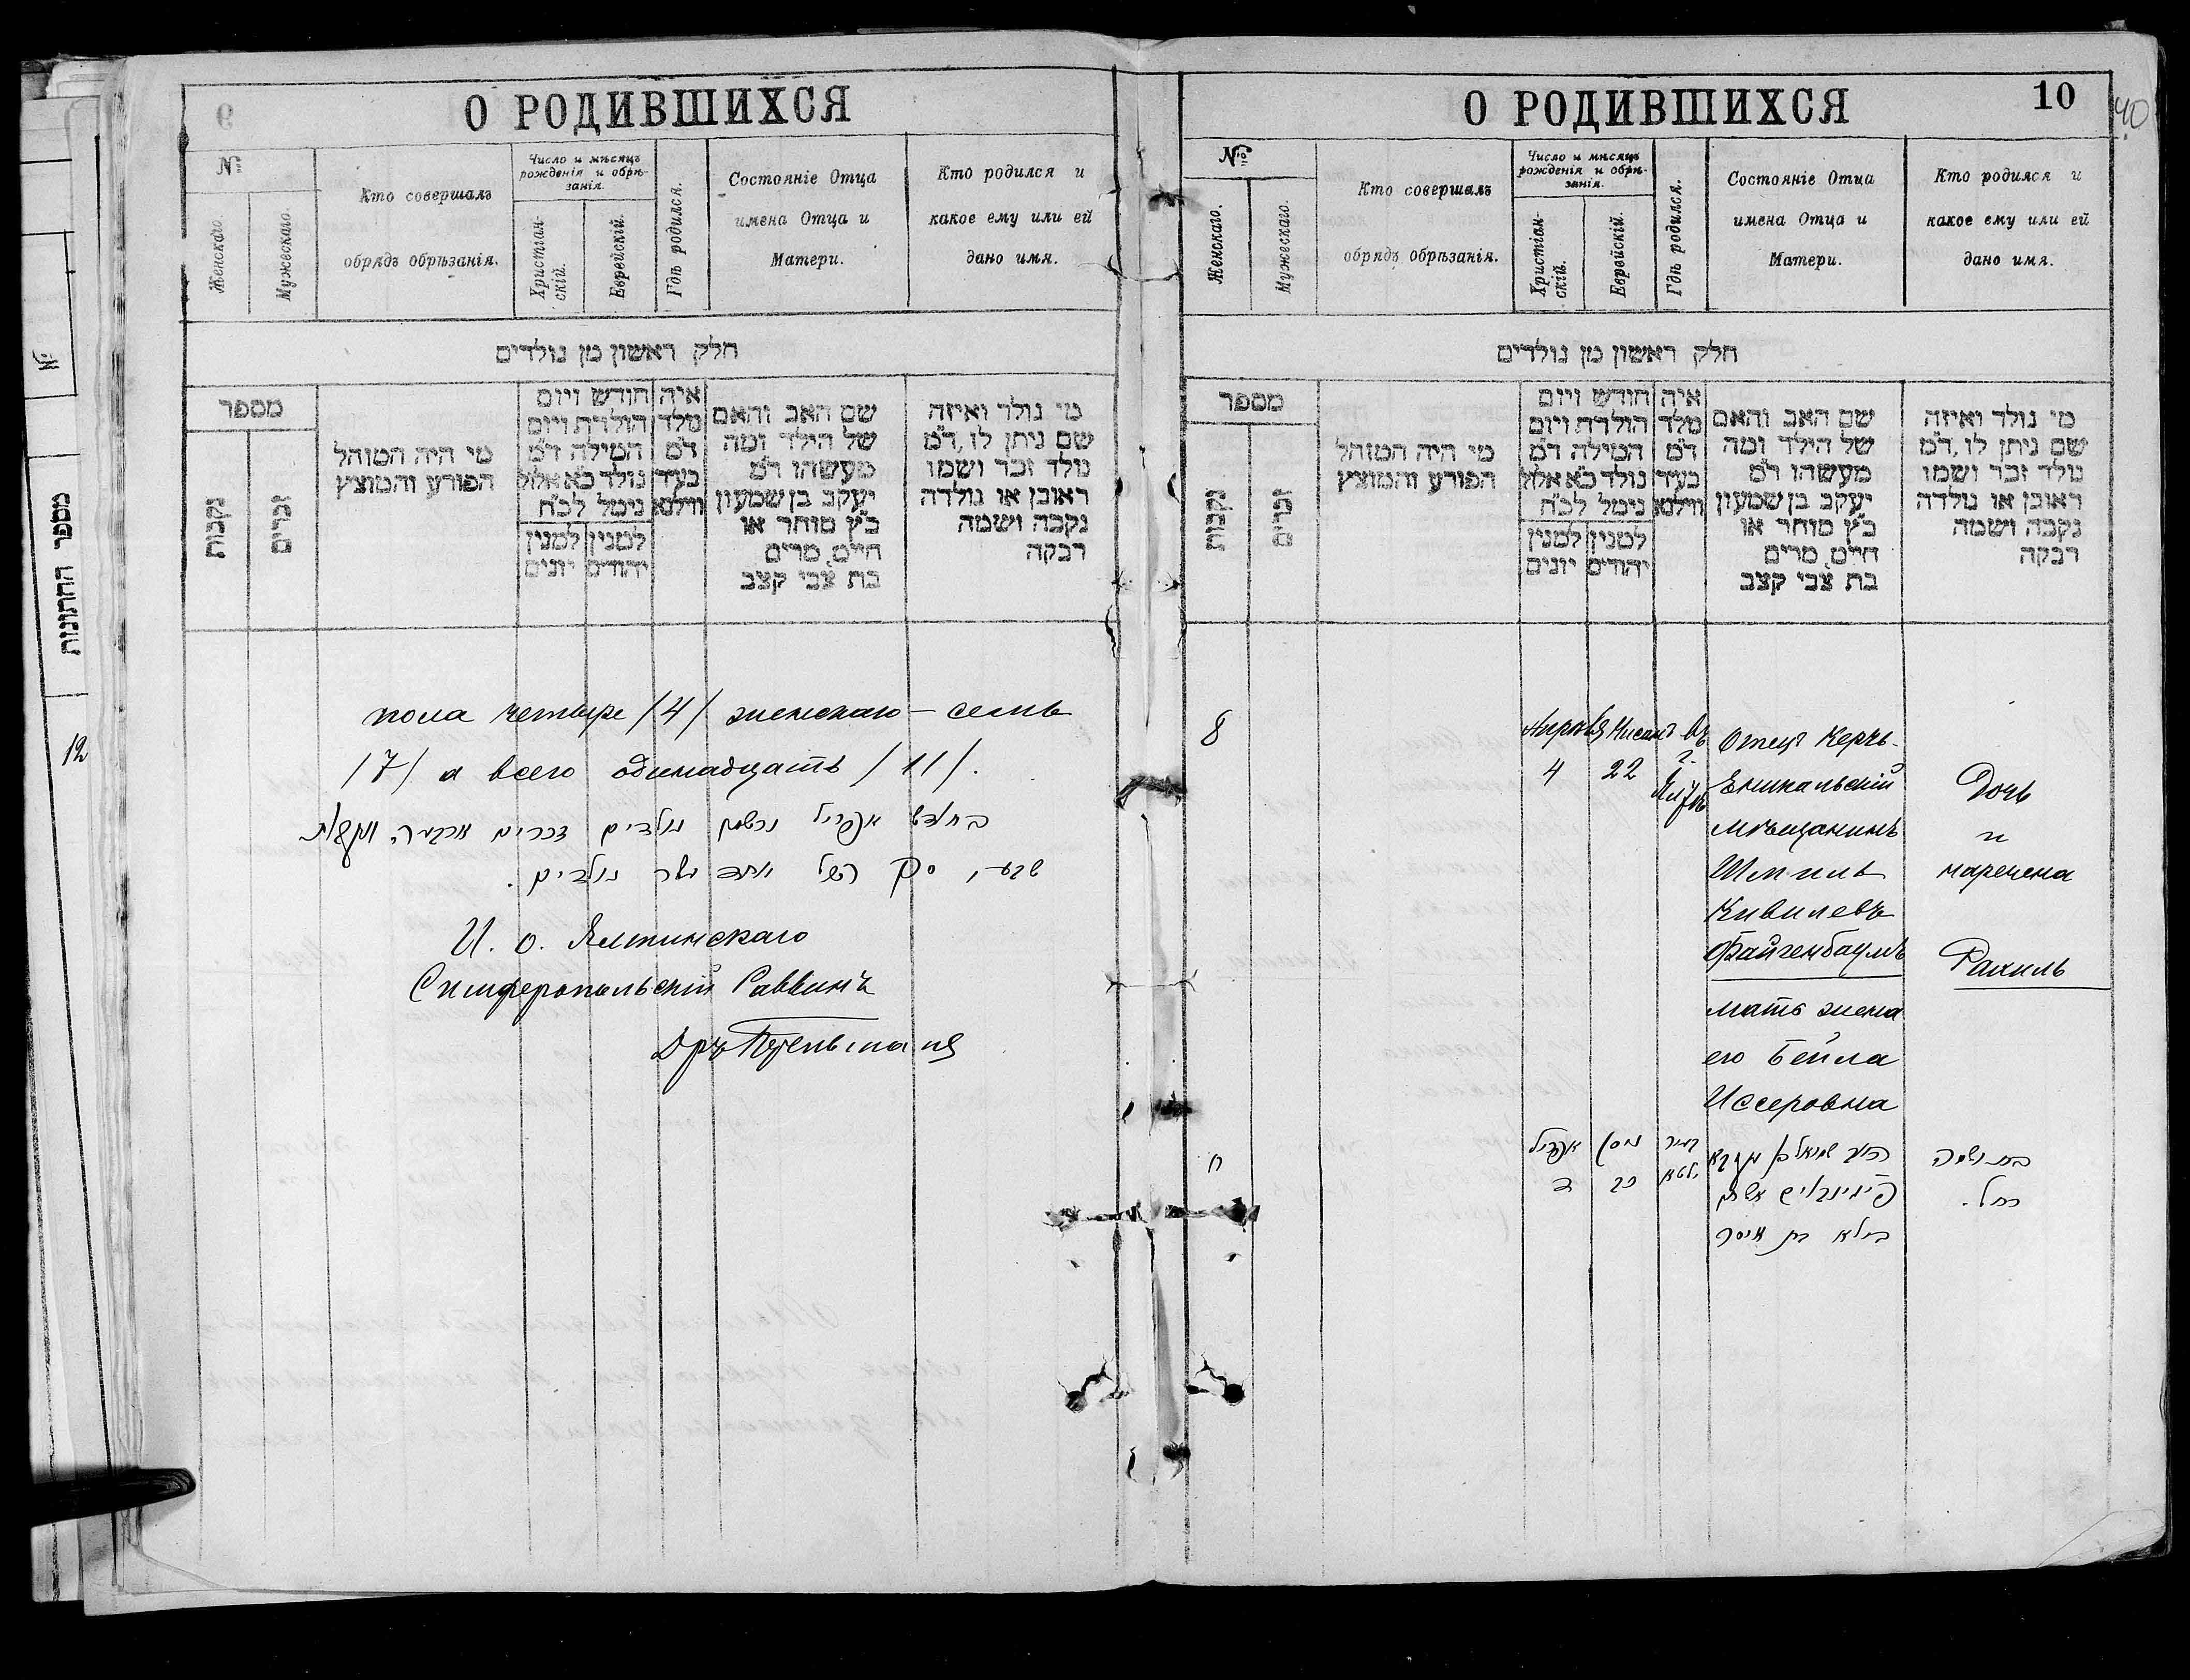 О РОДИВШИХСЯ
9
№
Женскаго.
Мужескаго.
Кто совершалъ
обрядъ обрѣзанія.
Число и мѣсяцъ
рожденія и обрѣ-
занія.
Христіан-
скій.
Еврейскій.
Гдѣ родился.
Состояніе Отца
имена Отца и
Матери.
Кто родился и
какое ему или ей
дано имя.
חלק ראשון מן נולדים
מספר
נקבות
זכרים
מי היה המוהל
הפורע והמוצץ
חודש ויום
הולדת ויום
המילה ד״מ
נולד כ״א אלול
נימל לכ״ח
למנין יהודים
למנין יונים
איה
מלד
ד״מ
בעיר
ווילנא
שם האב והאם
של הילד ומה
מעשהו ד״מ
יעקב בן שמעון
כ״ץ סוחר או
חייט, מרים
בת צבי קצב
מי נולד ואיזה
שם ניתן לו, ד״מ
נולד זכר ושמו
ראובן או נולדה
נקבה ושמה
רבקה
пола четыре /4/ женскаго – семь
/7/ а всего одинадцать /11/.
בחודש אפריל נרשמו נולדים זכרים ארבעה, ונקבות
שבעה, סך הכל אחד עשר נולדים.
И. о. Ялтинскаго
Симферопольскій Раввинъ
Дръ
מספר החתונות
12
О РОДИВШИХСЯ
10
40
№
Женскаго.
Мужескаго.
Кто совершалъ
обрядъ обрѣзанія.
Число и мѣсяцъ
рожденія и обрѣ-
занія.
Христіан-
скій.
Еврейскій.
Гдѣ родился.
Состояніе Отца
имена Отца и
Матери.
Кто родился и
какое ему или ей
дано имя.
חלק ראשון מן נולדים
מספר
נקבות
זכרים
מי היה המוהל
הפורע והמוצץ
חודש ויום
הולדת ויום
המילה ד״מ
נולד כ״א אלול
נימל לכ״ח
למנין יהודים
למנין יונים
איה
מלד
ד״מ
בעיר
ווילנא
שם האב והאם
של הילד ומה
מעשהו ד״מ
יעקב בן שמעון
כ״ץ סוחר או
חייט, מרים
בת צבי קצב
מי נולד ואיזה
שם ניתן לו, ד״מ
נולד זכר ושמו
ראובן או נולדה
נקבה ושמה
רבקה
8
Апрѣля
4
Нисанъ
22
Въ
г.
Ялтѣ
Отецъ Керчь-
Еникальскій
мѣщанинъ
Шмиль
Кивилевъ
Файгенбаумъ
мать жена
его Бейла
Иссеровна
Дочь
и
наречена
Рахиль
ח
אפריל
ד
ניסן
כב
בעיר
ילטא
פייגינבוים אשתו
ביילא בת איסר
בת ושמה
רחל.